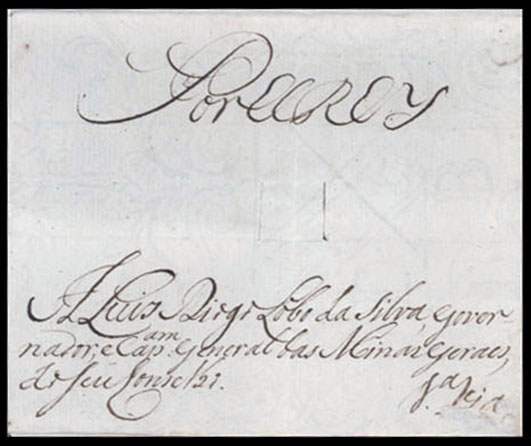 Por ElRey
A Luis Diego Lobo da Silva, Gover-
nador, e Cap.am General das Minas Geraes,
do seu Conselho.